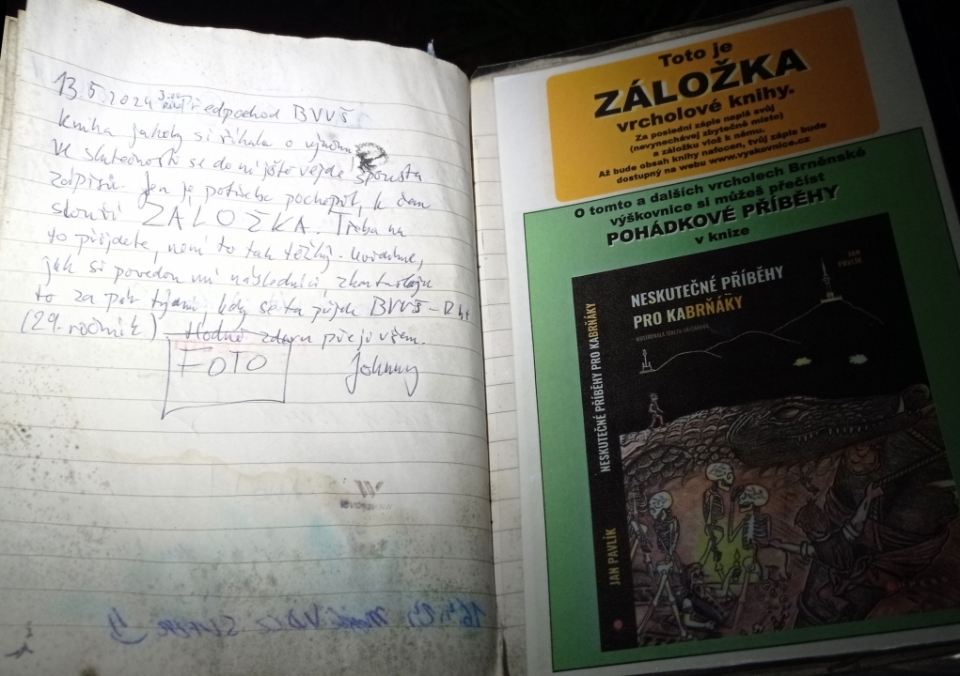 13.5.2024 3:00 ráno Předpochod BVVŠ
kniha jakoby si říkala o výměnu
Ve skutečnosti se do ní ještě vejde spousta
zápisů. Jen je potřeba pochopit, k čemu
slouží ZÁLOŽKA. Třeba na
to přijdete, není to tak těžký. Uvidíme,
jak si povedou mí následníci, zkontroluju
to za pár týdnů, kdy se ta půjde BVVŠ
(29. ročník) Hodně zdaru přeji všem.
FOTO Johnny
Toto je
ZÁLOŽKA
vrcholové knihy.
Za poslední zápis napiš svůj
(nevynechávej zbytečně místo)
a záložku vlož k němu.
Až bude obsah knihy nafocen, tvůj zápis bude
dostupný na webu www.vyskovnice.cz
O tomto a dalších vrcholech Brněnské
výškovnice si můžeš přečíst
POHÁDKOVÉ PŘÍBĚHY
v knize
JAN PAVLÍK
NESKUTEČNÉ PŘÍBĚHY PRO KABRŇÁKY
NESKUTEČNÉ PŘÍBĚHY
PRO KABRŇÁKY
JAN
PAVLÍK